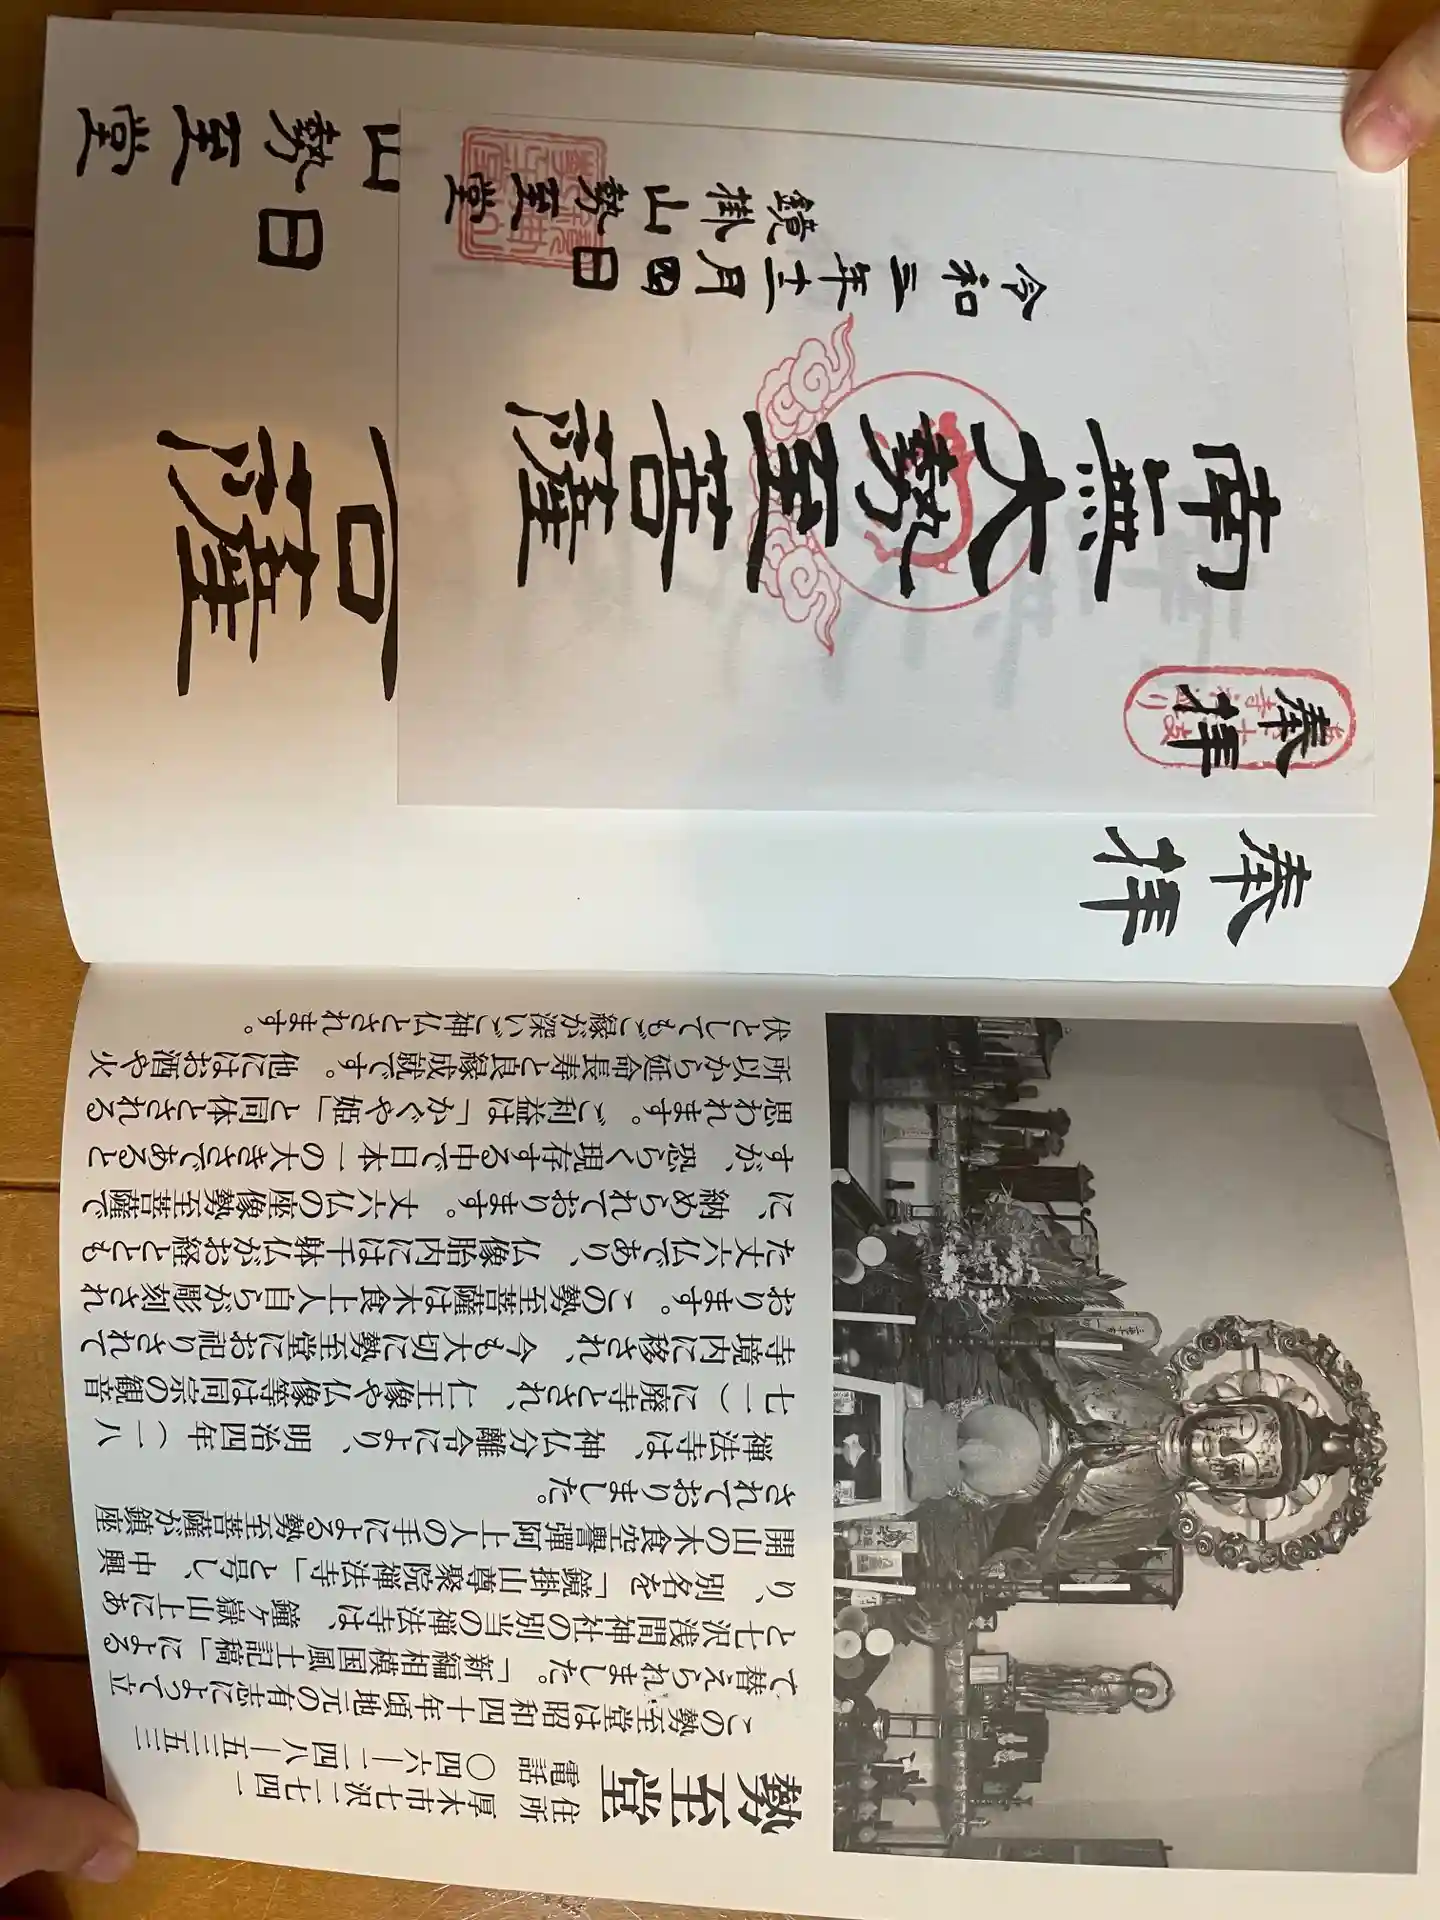 勢至堂
住所 厚木市七沢二七四一
電話 〇四六―二四八―五三五三
この勢至堂は昭和四十年頃地元の有志によって立
て替えられました。「新編相模国風土記稿」による
と七沢浅間神社の別当の禅法寺は、鐘ヶ嶽山上にあ
り、別名を「鏡掛山尊聚院禅法寺」と号し、中興
開山の木食空譽彈阿上人の手による勢至菩薩が鎮座
されておりました。
禅法寺は、神仏分離令により、明治四年(一八
七一)に廃寺とされ、仁王像や仏像等は同宗の観音
寺境内に移され、今も大切に勢至堂にお祀りされて
おります。この勢至菩薩は木食上人自らが彫刻され
た丈六仏であり、仏像胎内には千躰仏がお経ととも
に、納められております。丈六仏の座像勢至菩薩で
すが、恐らく現存する中で日本一の大きさであると
思われます。ご利益は「かぐや姫」と同体とされる
所以から延命長寿と良縁成就です。他にはお酒や火
伏としてもご縁が深いご神仏とされます。
奉拝
奉拝
南無大勢至菩薩
令和三年十二月四日
鏡掛山勢至堂
薩
日
山勢至堂